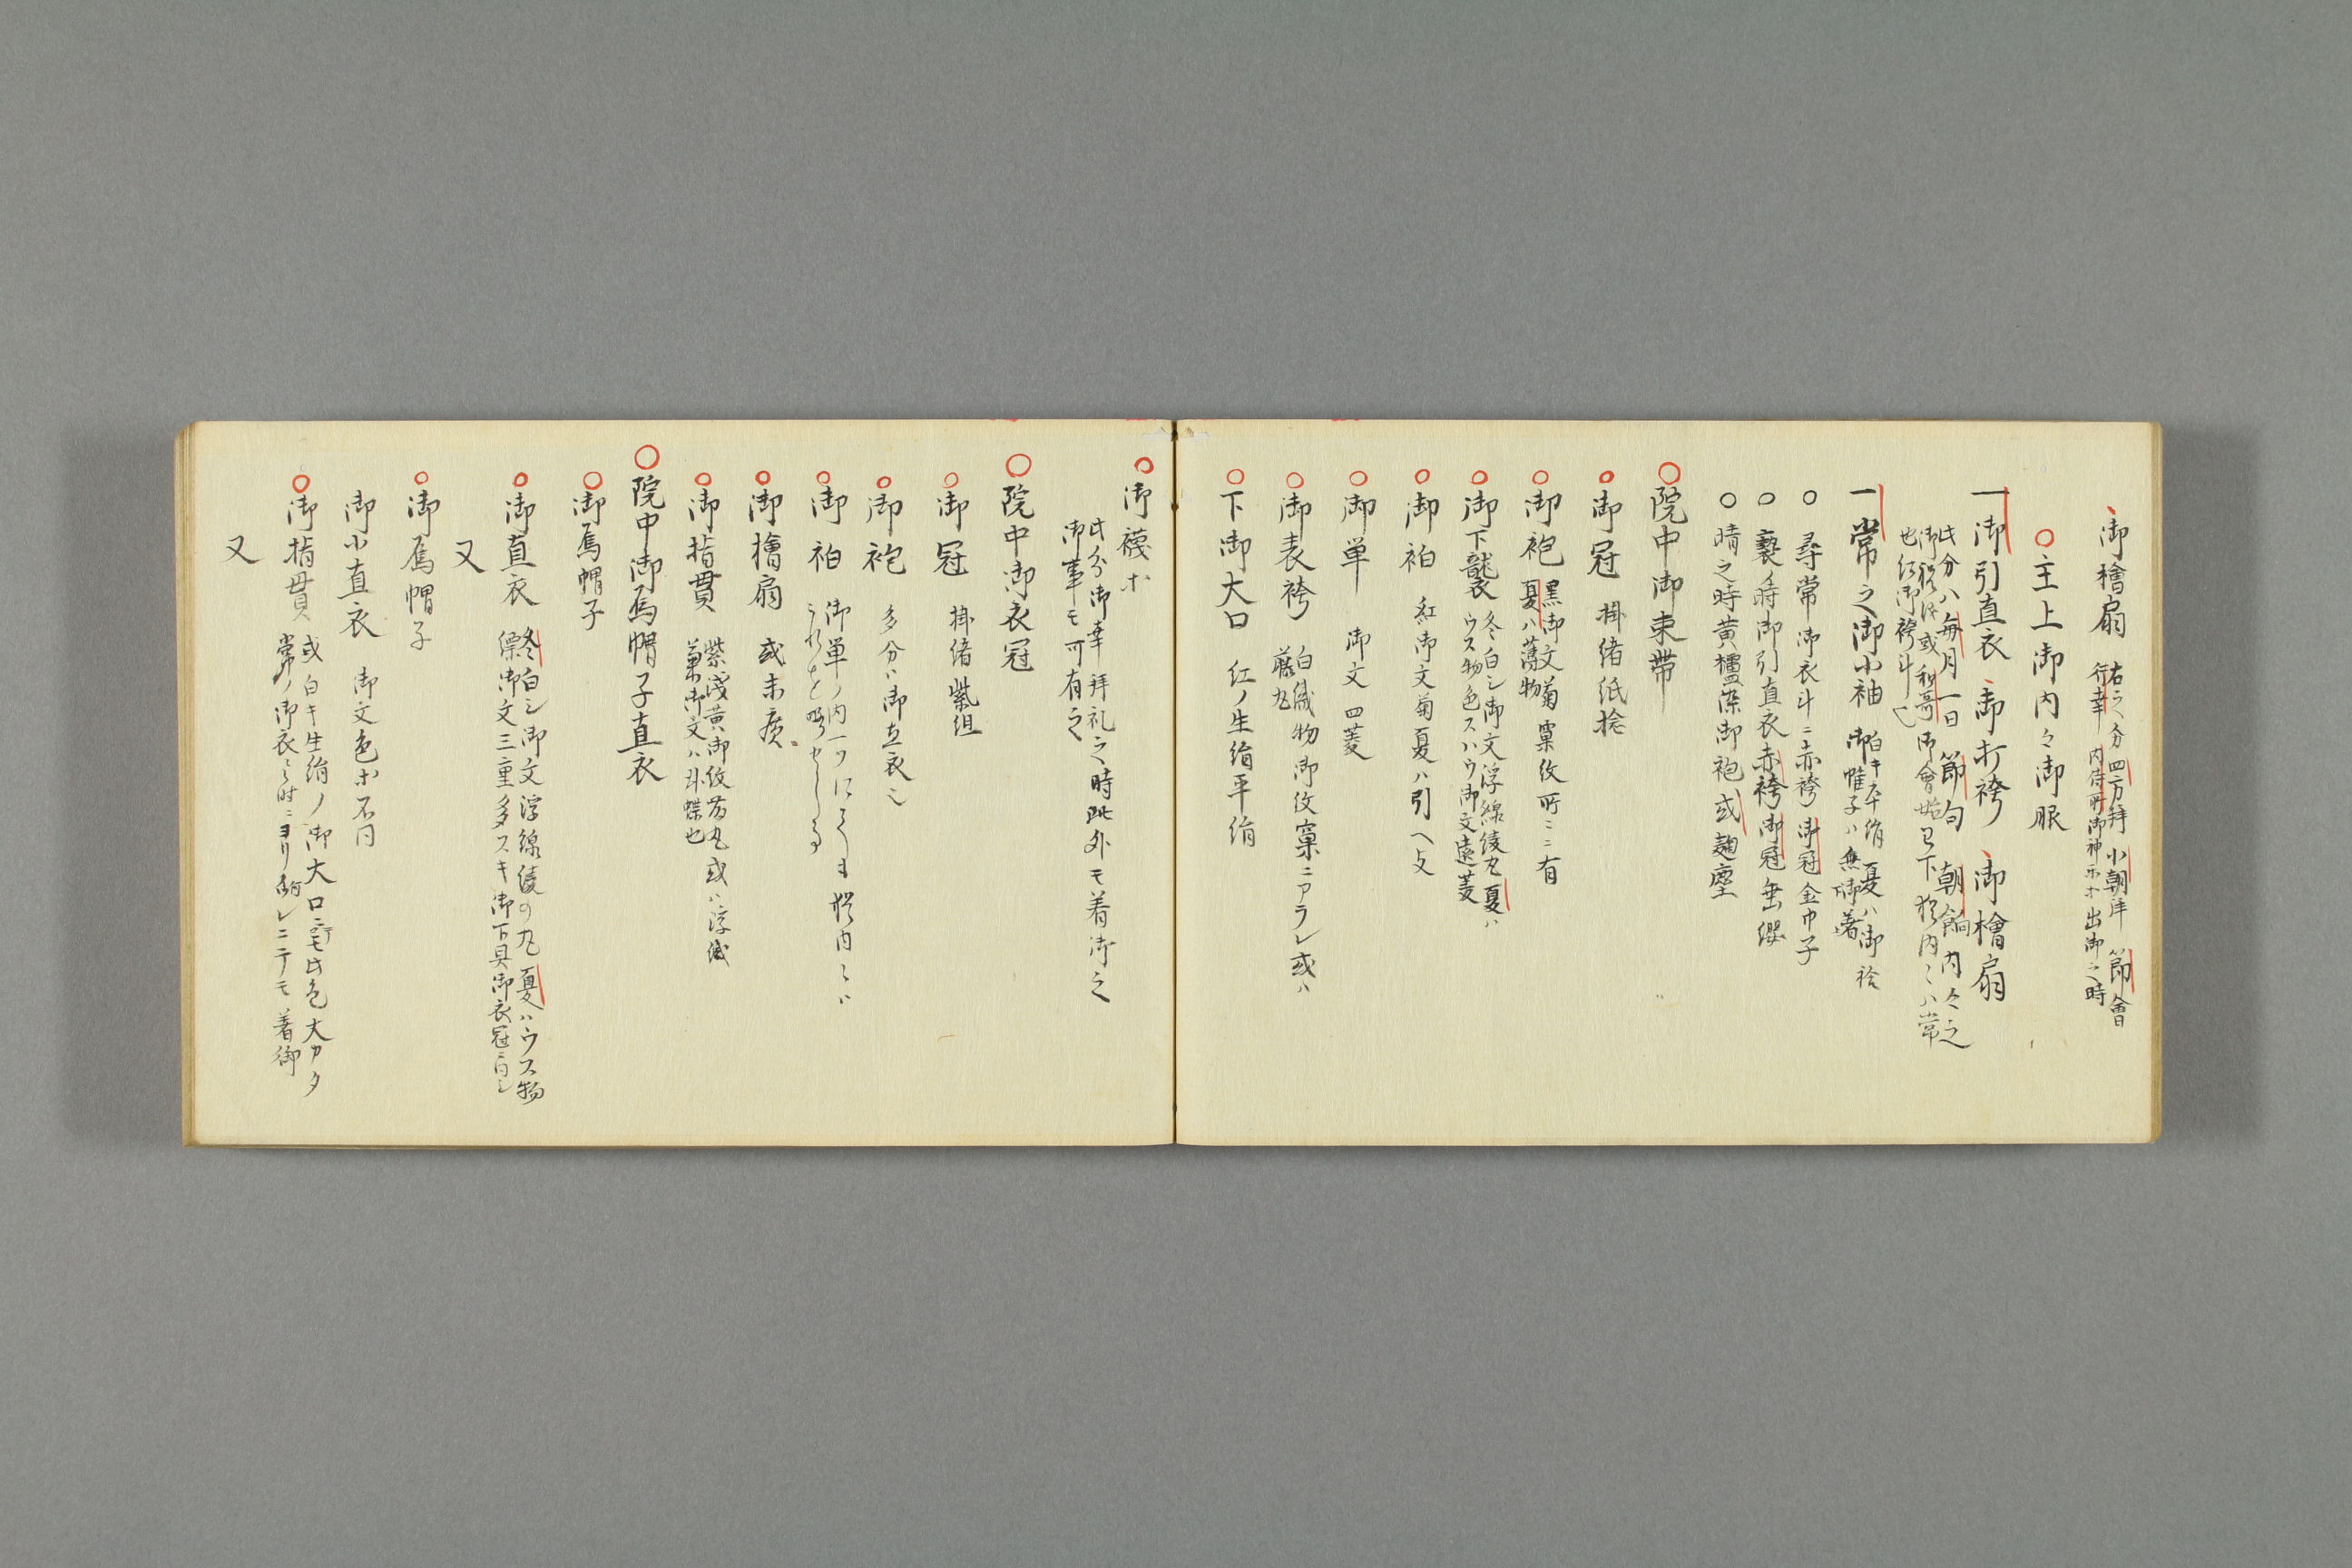 御檜扇 右之分四方拝 小朝拝 節會
行幸 内侍所御神楽 出御之時
○主上御内々御服
一御引直衣 御打袴 御檜扇
此分ハ毎月一日 節句 朝餉内々之
御祝 或和哥御會始 已下 内々ハ常
也 紅御袴斗
一常之御小袖 白キ平絹 夏ハ御袷
御帷子ハ無御着
○尋常御衣斗ニ赤袴 御冠 金巾子
○褻ノ時御引直衣 赤袴 御冠 垂纓
○晴之時黄櫨染御袍 或 麹塵
○院中御束帯
○御冠 掛緒紙捻
○御袍 黒御文菊 窠紋所ニニ有
夏ハ薄物
○御下襲 冬白シ御文浮線綾丸 夏ハ
ウス物色スハウ御文遠菱
○御袙 紅御文菊 夏ハ引ヘ文
○御単 御文 四菱
○御表袴 白織物御紋窠ニアラレ 或ハ
藤丸
○下御大口 紅ノ生絹平絹
○御襪
此分御幸 拝礼之時 此外モ着御之
御事モ可有之
○院中御衣冠
○御冠 掛緒 紫組
○御袍 多分ハ御直衣之
○御袙 御単ノ内一ツ
○御檜扇 或末廣
○御指貫 紫浅黄御紋 丸 或ハ浮織
菓御文ハ 蝶也
○院中御烏帽子直衣
○御烏帽子
○御直衣 冬白シ御文浮線綾の丸 夏ハウス物
縹御文三重多スキ 御下具御衣冠ニ同シ
又
○御烏帽子
御小直衣 御文色 不同
○御指貫 或白キ生絹ノ御大口ニテモ此色大カタ
常ノ御衣之時ニヨリ何レニテモ着御
又